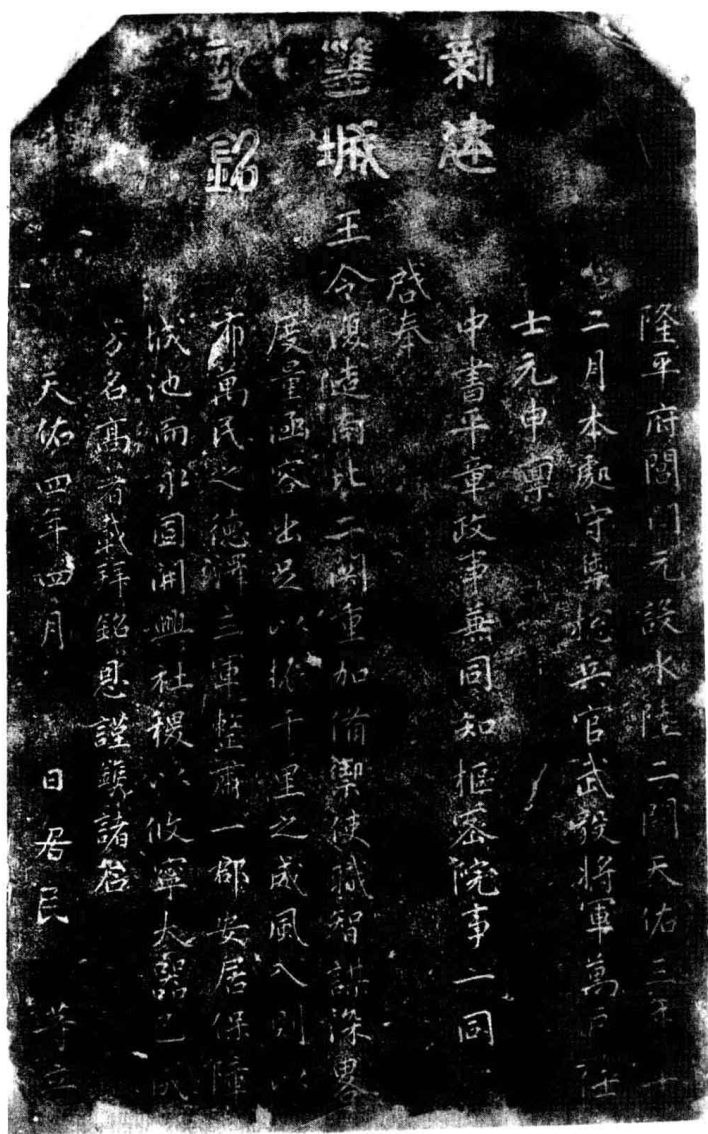 新建
月城
記銘
隆平府閶門元設水陸二關天佑三年十
二月本處守禦總兵官武毅將軍萬戶任
士元申稟
中書平章政事兼同知樞密院事一同
啓奉
王令復建南北二関重加備禦使職智謀深畧
度量函容出足以揚千里之威風入則以
布萬民之德澤三軍整肅一郡安居保障
城池而永固開興社稷以攸寧大噐已成
芳名髙著載拜銘恩謹鐫諸石
天佑四年四月 日居民 等立